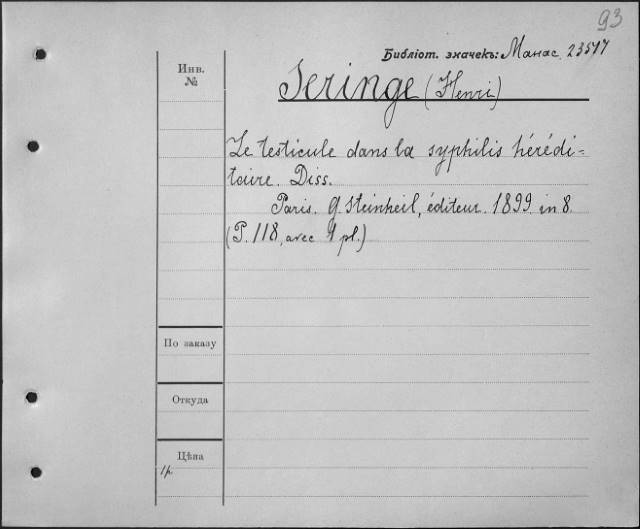 93
Библіот. значекъ: Манас. 23577
Инв.
№
Seringe (Henri)
Le testicule dans la syphilis hérédi-
taire. Diss.
Paris. G. Steinheil, éditeur. 1899. in 8.
(P. 118, avec 4 pl.)
По заказу
Откуда
Цѣна
1р